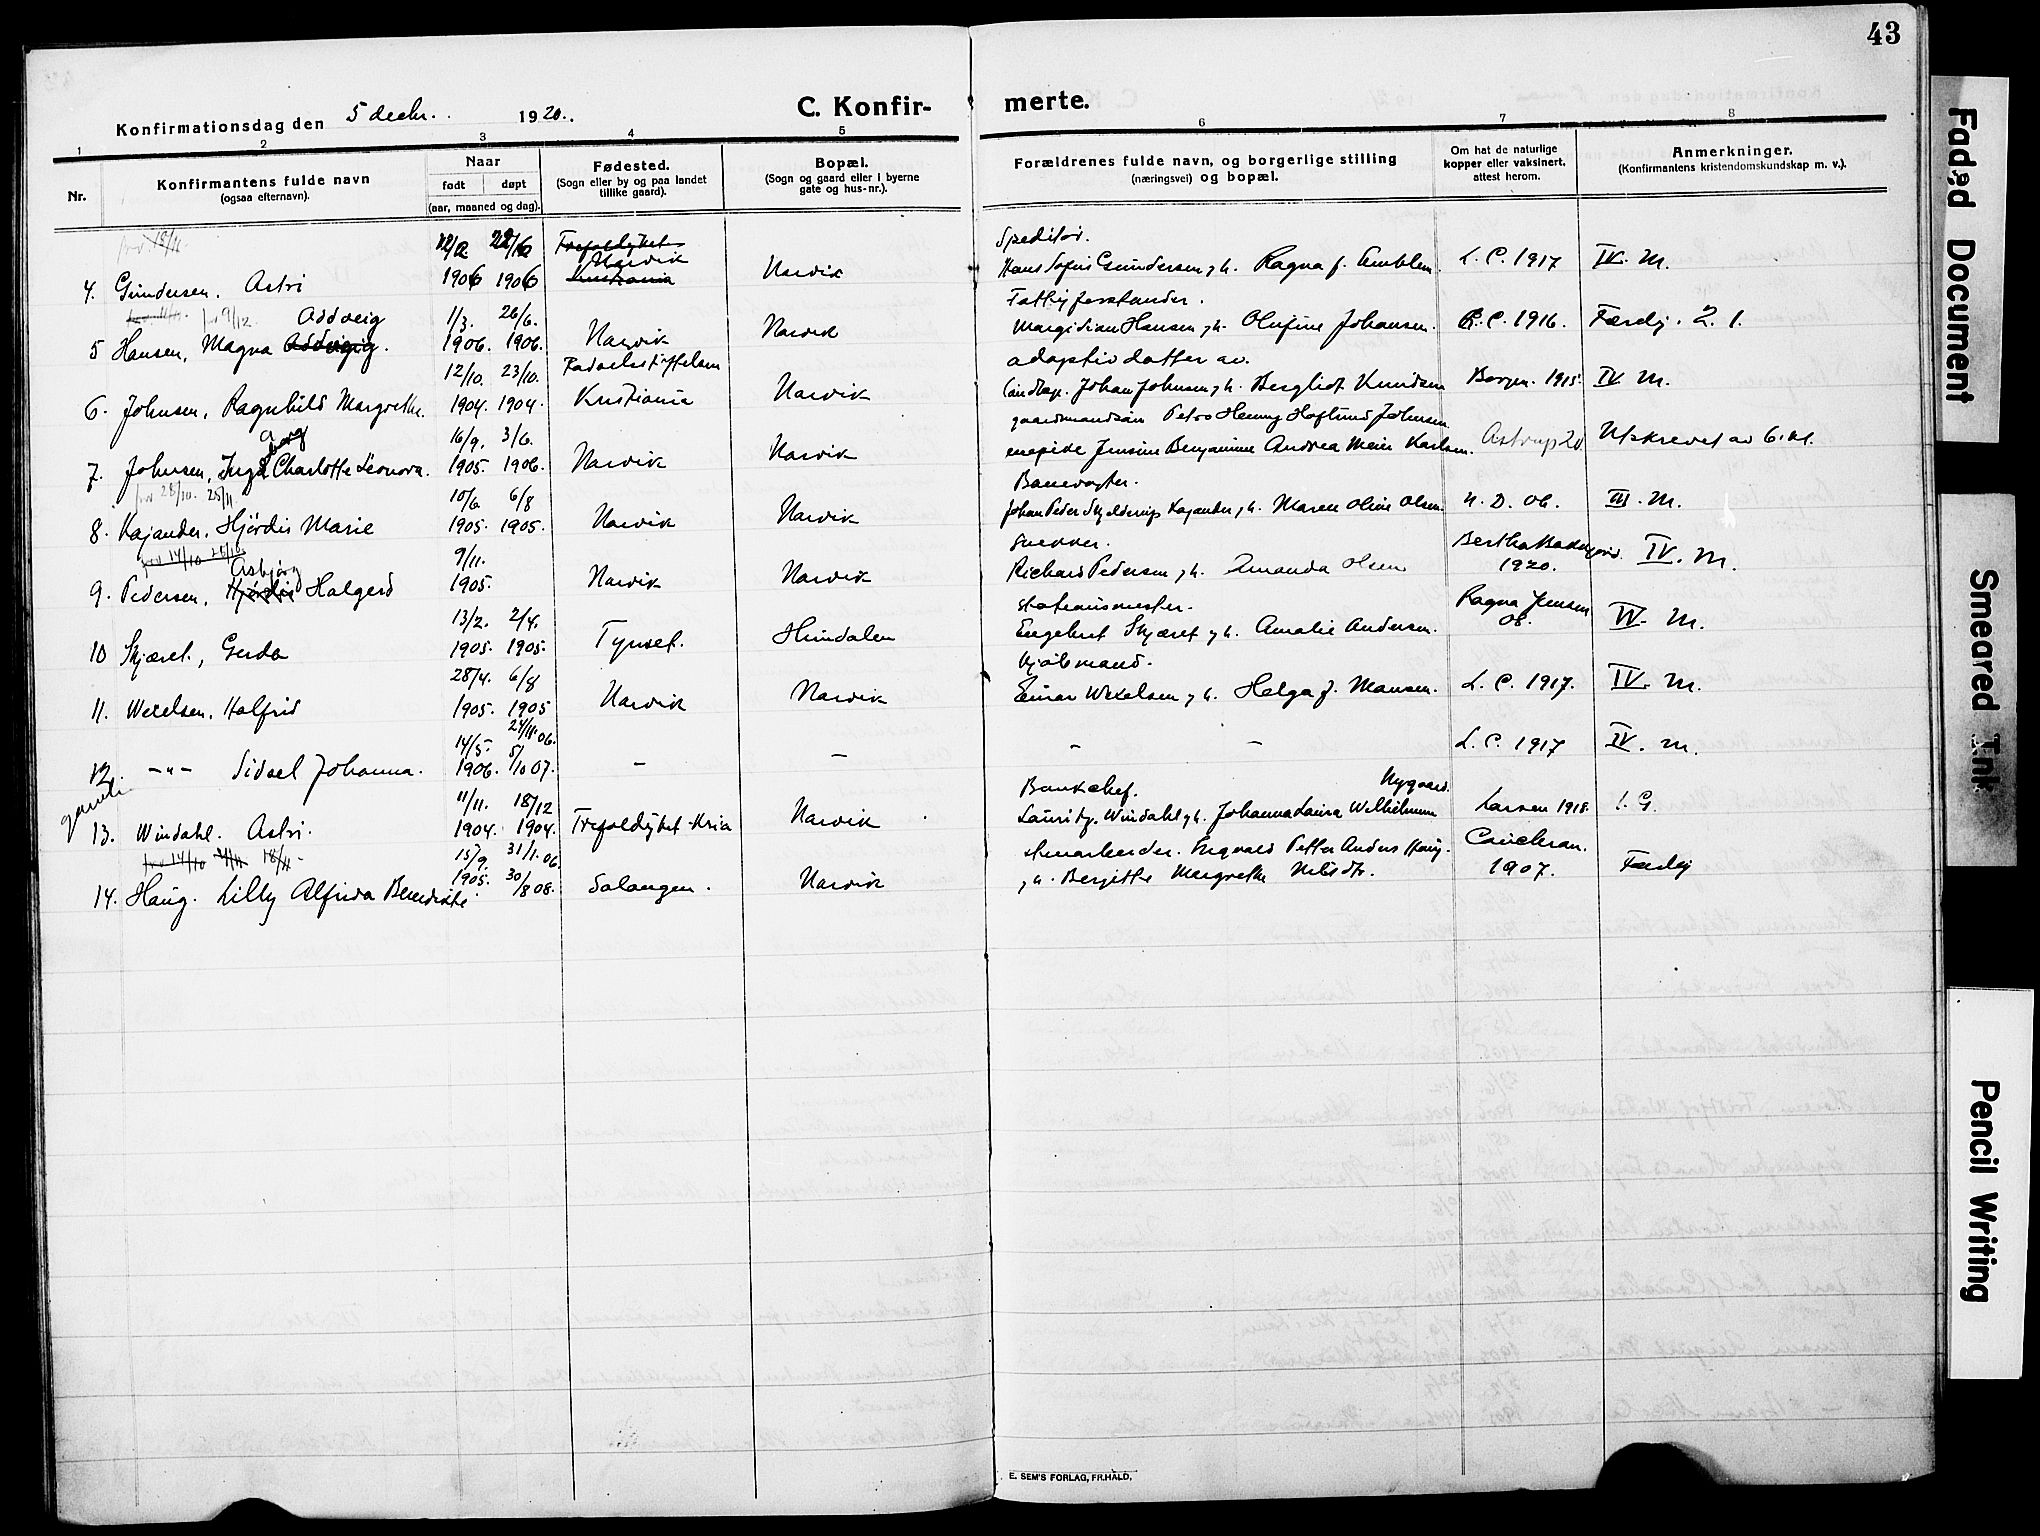 43
Konfirmationsdag den 5 decbr. 1920.
C. Konfirmerte.
1 2 3 4 5 6 7 8
Nr.
Konfirmantens fulde navn
(ogsaa efternavn).
Naar
født døpt
(aar, maaned og dag).
Fødested.
(Sogn eller by og paa landet
tillike gaard).
Bopæl.
(Sogn og gaard eller i byerne
gate og hus-nr.).
Forældrenes fulde navn, og borgerlige stilling
(næringsvei) og bopæl.
Om hat de naturlige
kopper eller vaksinert,
attest herom.
Anmerkninger.
(Konfirmantens kristendomskundskap m. v.).
Trefoldighet Speditør.
4. Gundersen. Astri 1906 1906 Narvik Kristiania Narvik Hans Sofus Gundersen, h. Ragna f. Amblem. L. C. 1917 IV. M.
9/12 Addveig 1/3. 26/6. Fattigforstander.
5 Hansen, Magna 1906. 1906. Narvik Narvik Margidian Hansen, h. Olufine Johansen. C. 1916. Færdig. 2. 1.
12/10. 23/10. Fødselsstiftelsen adoptivdatter av
6. Johnsen, Ragnhild Margrethe. 1904. 1904. Kristiania Narvik Johan Johnsen, h. Bergliot Knudsen Borgen. 1915. IV M.
Borg 16/9. 3/6. gaardmandsøn Petro Henny Hoflund Johnsen
7. Johnsen, Inga Charlotte Leonora. 1905. 1906. Narvik Narvik enepike Jensine Benjamine Andrea Marie Karlsen. Astrup 20 Utskrevet av 6. kl.
28/10. 25/11 10/6 6/8 Banevogter.
8. Kajander, Hjørdis Marie 1905. 1905. Narvik Narvik Johan Peder Skjelderup Kajander, h. Maren Oline Olsen. N. D. Ob. III. M.
14/10 28/10 Asbjørg 9/11. Snekker.
9. Pedersen, Hjørdis Halgerd 1905. Narvik Narvik Richard Pedersen, h. Amanda Olsen Bertha 1920. IV. M.
13/2. 2/4. stationsmester.
10 Skjæret, Gerda 1905. 1905. Tynset. Hundalen Engebret Skjæret, h. Amalie Andersen. Ragna Jensen Ob. IV. M.
28/4. 6/8 Kjøbmand.
11. Wexelsen, Halfrid 1905. 1905 Narvik Narvik Einar Wexelsen, h. Helga f. Mansen. L. C. 1917. IV. M.
14/5. 24/11. 06.
12. -"- Sidsel Johanna. 1906. 5/10 07. - - - - L. C. 1917 IV. M.
11/11. 18/12 Bankchef. Nygaard.
13. Windahl. Astri. 1904. 1904. Trefoldighet Kria Narvik Lauritz. Windahl, h. Johanna Laura Wilhelmine Larsen 1918. 1. G.
14/10 4/11 18/11 15/9. 31/1. 06. Ingvard Petter Anders Haug.
14. Haug. Lilly Alfrida Benedikte 1905. 30/8 08. Salangen. Narvik h. Bergitte Margrethe Nilsdtr. 1907. Færdig
E. SEM'S FORLAG, FR.HALD.
Faded Document
Smeared Ink
Pencil Writing